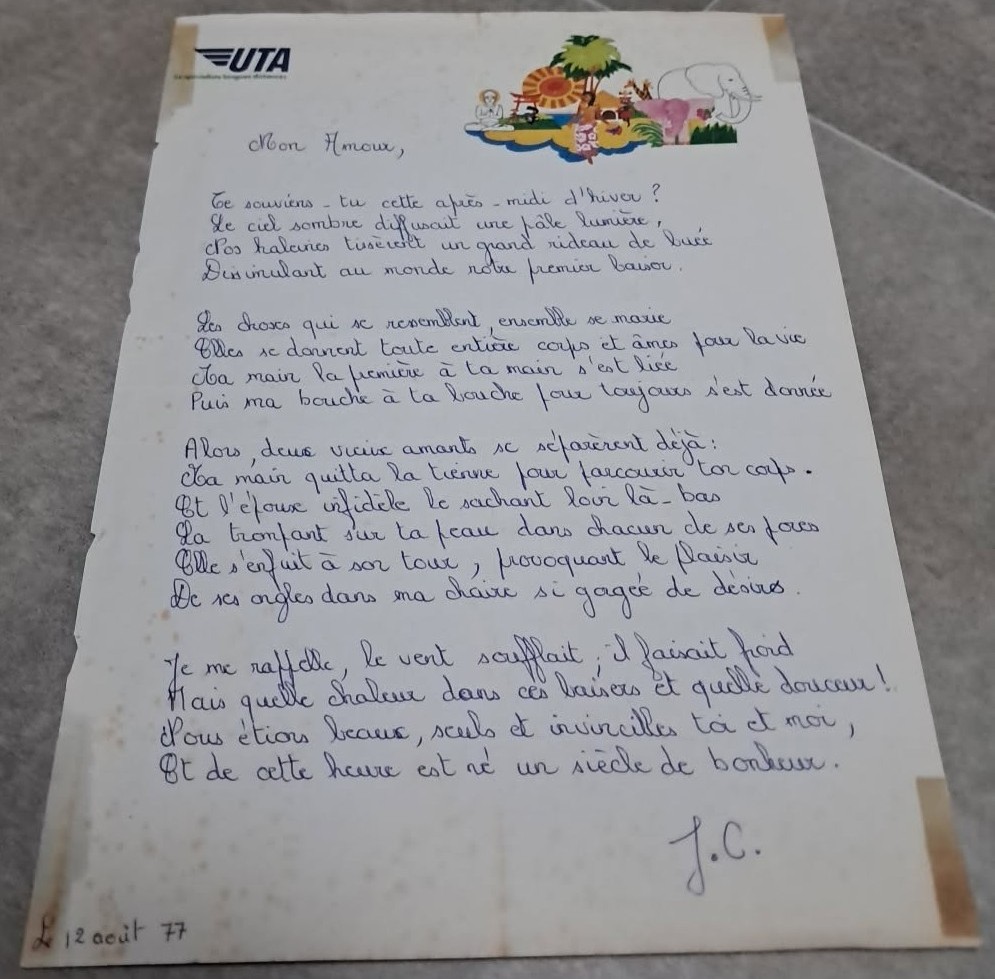 UTA
Mon Amour,
Te souviens-tu cette après-midi d'hiver ?
Le ciel sombre diffusait une pâle lumière,
Nos haleines tissèrent un grand rideau de buée
Dissimulant au monde notre premier baiser.
Les choses qui se ressemblent, ensemble se marie
Elles se donnent toute entière corps et âmes pour la vie
Ma main la première à ta main s'est liée
Puis ma bouche à ta bouche pour toujours s'est donnée
Alors, deux vieux amants se séparèrent déjà :
Ma main quitta la tienne pour parcourir ton corps.
Et l'époux infidèle le sachant loin là-bas
La trompant sur ta peau dans chacun de ses pores
Elle s'enfuit à son tour, provoquant le plaisir
De ses ongles dans ma chaire si gagée de désires.
Je me rappelle, le vent soufflait, il faisait froid
Mais quelle chaleur dans ces baisers et quelle douceur !
Nous étions beaux, seuls et invincibles toi et moi,
Et de cette heure est né un siècle de bonheur.
J.C.
Le 12 août 77